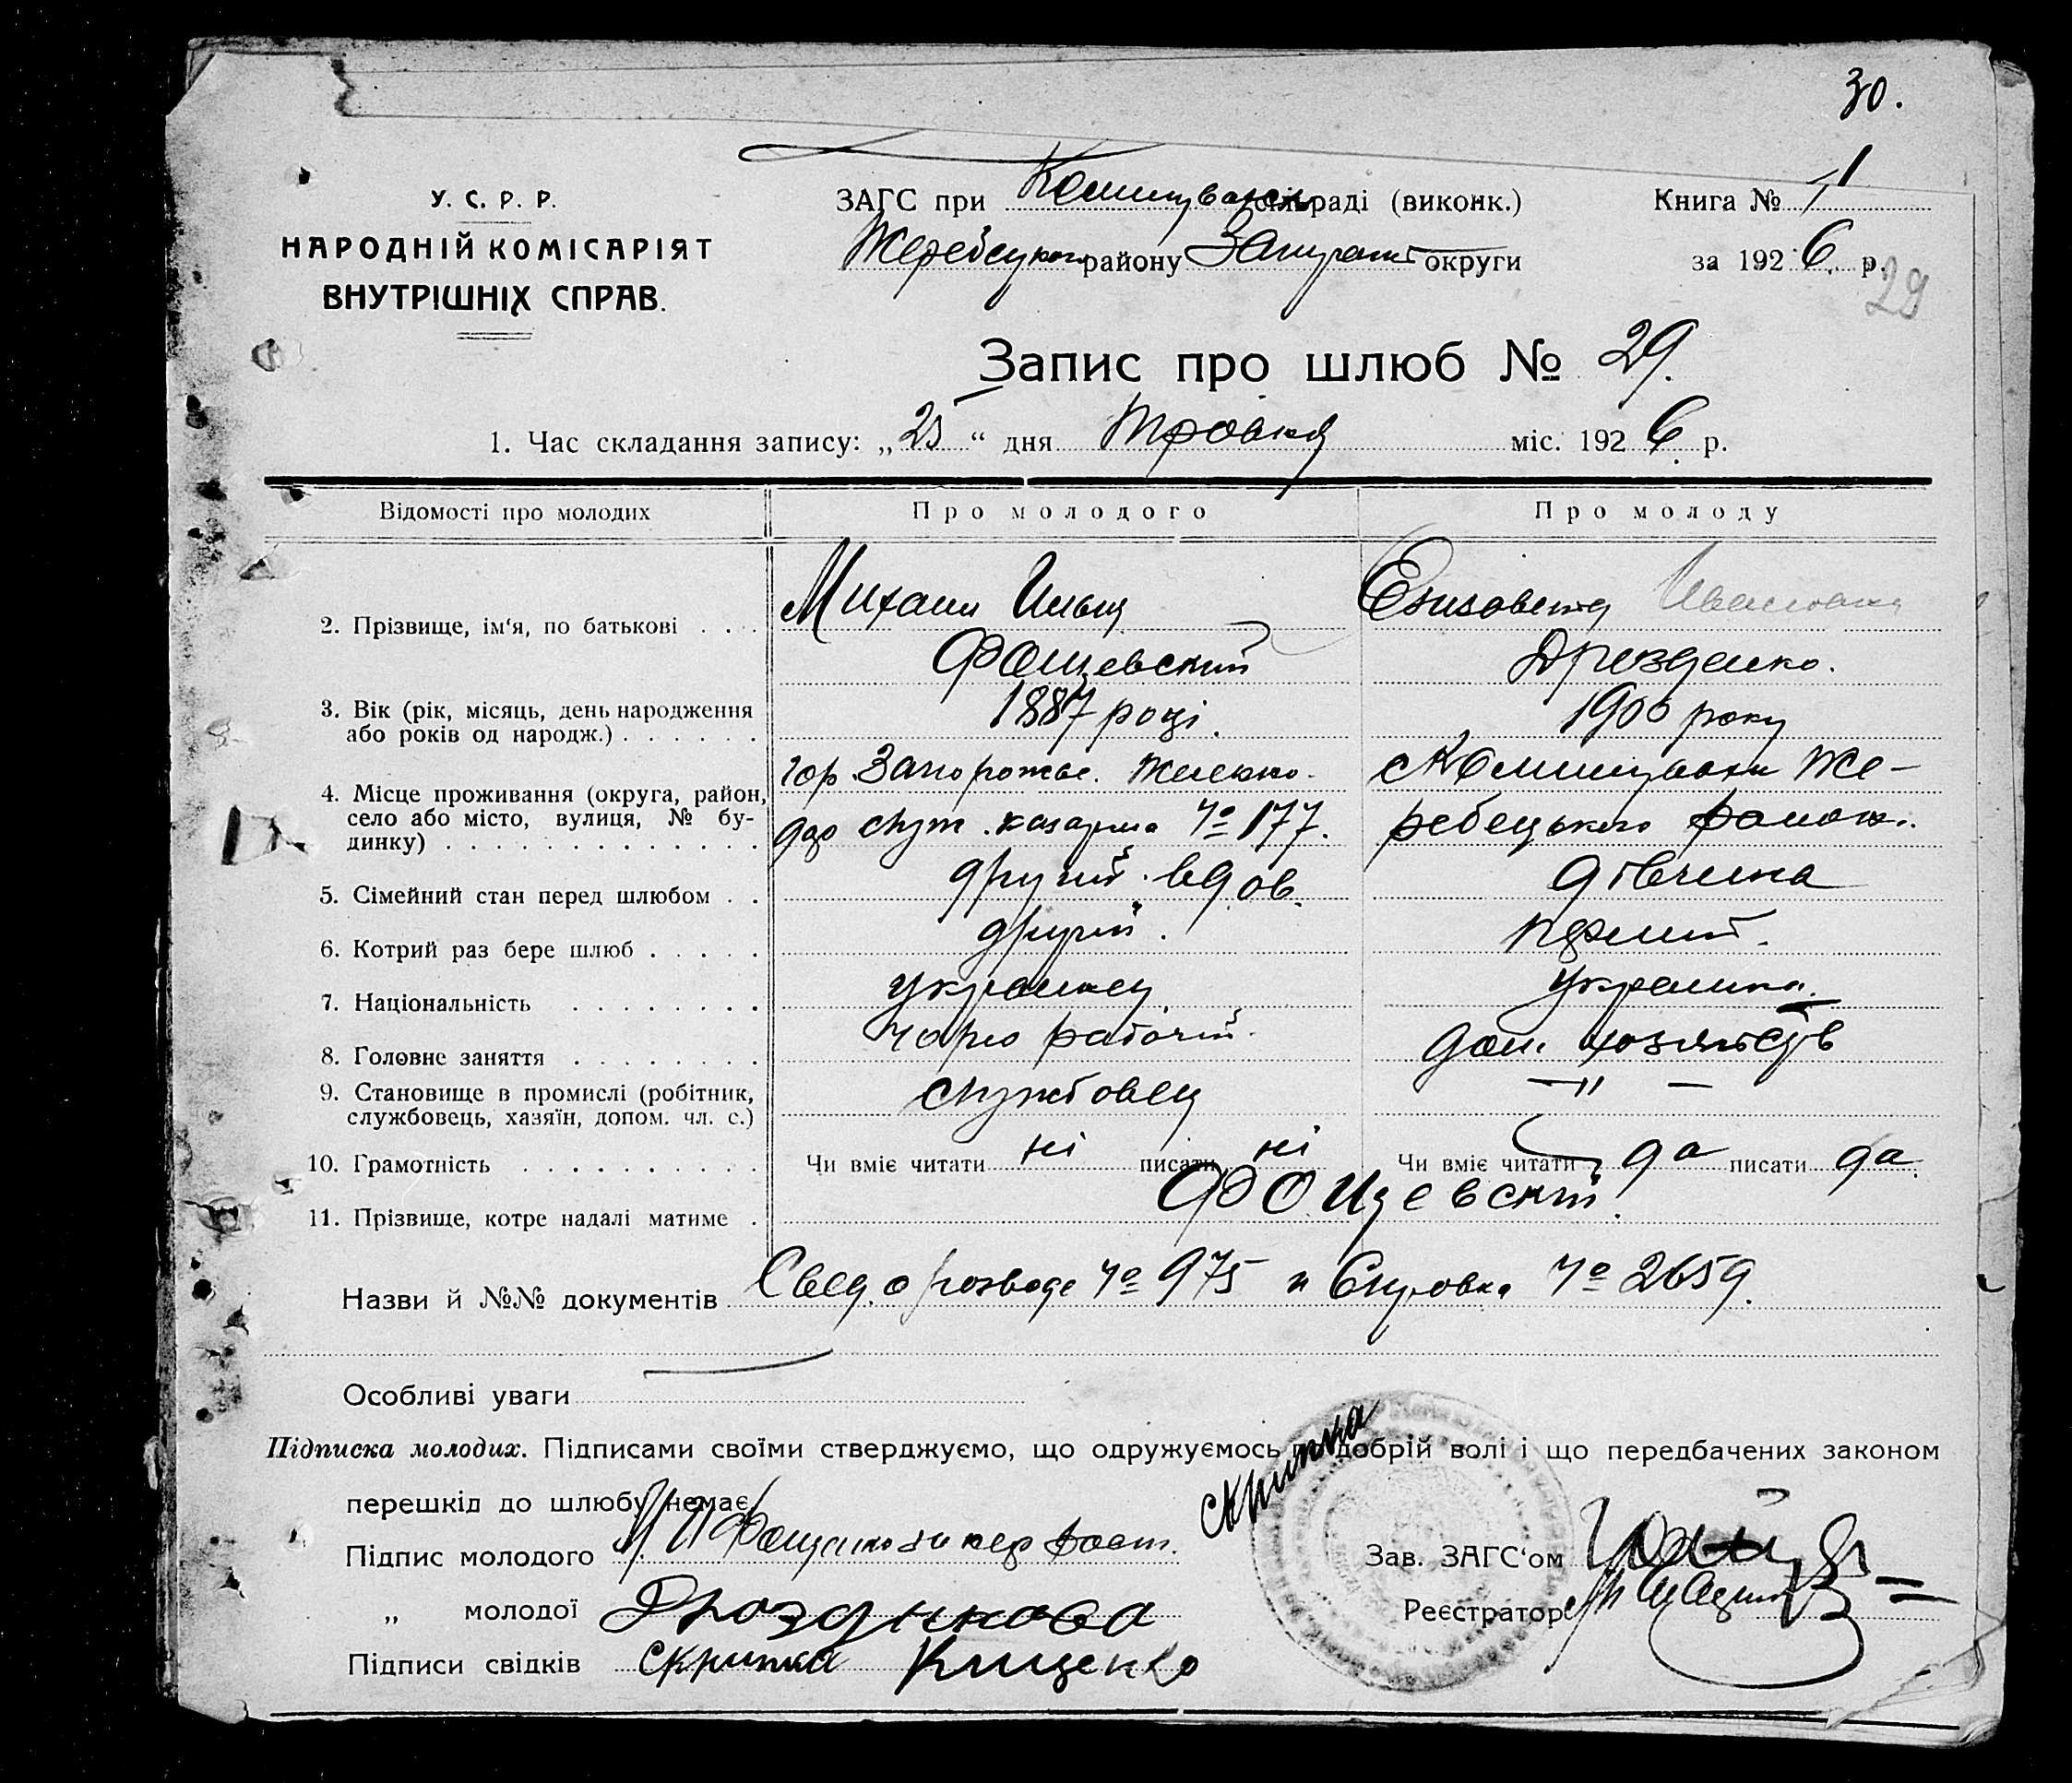 30.
У. С. Р. Р.
НАРОДНІЙ КОМІСАРІЯТ
ВНУТРІШНІХ СПРАВ.
ЗАГС при Комишуваськ сільраді (виконк.)
Жеребецького району Запоріжс округи
Книга № 1
за 1926 р.
29
Запис про шлюб № 29.
1. Час складання запису: „25“ дня Травня міс. 1926 р.
Відомості про молодих Про молодого Про молоду
2. Прізвище, ім'я, по батькові . . . Михаил Ильич Елизавета Ивановна
Фощевский Дрозденко.
3. Вік (рік, місяць, день народження або років од народж.) . . . . . . 1887 році. 1906 року
4. Місце проживання (округа, район, село або місто, вулиця, № будинку) . . . . . . . . . . . . . гор. Запорожье. Железно- с Комишуваха Же-
дор казарма № 177. ребецького район.
5. Сімейний стан перед шлюбом . . другий вдов. дівчина
6. Котрий раз бере шлюб . . . . . другий. перший.
7. Національність . . . . . . . . украинец украинка.
8. Головне заняття . . . . . . . . чорно рабочій. дом. хозяйств
9. Становище в промислі (робітник, службовець, хазяїн, допом. чл. с.) службовец — " —
10. Грамотність . . . . . . . . . . Чи вміє читати ні писати ні Чи вміє читати да писати да.
11. Прізвище, котре надалі матиме . Фощевский.
Назви й №№ документів Свед. о розводе № 975 и № 2659.
Особливі уваги
Підписка молодих. Підписами своїми стверджуємо, що одружуємось по добрій волі і що передбачених законом
перешкід до шлюбу немає
скрипка
Підпис молодого
„ молодої Дрозднкова
Підписи свідків скрипка Кищенко
Зав. ЗАГС'ом
Реєстратор